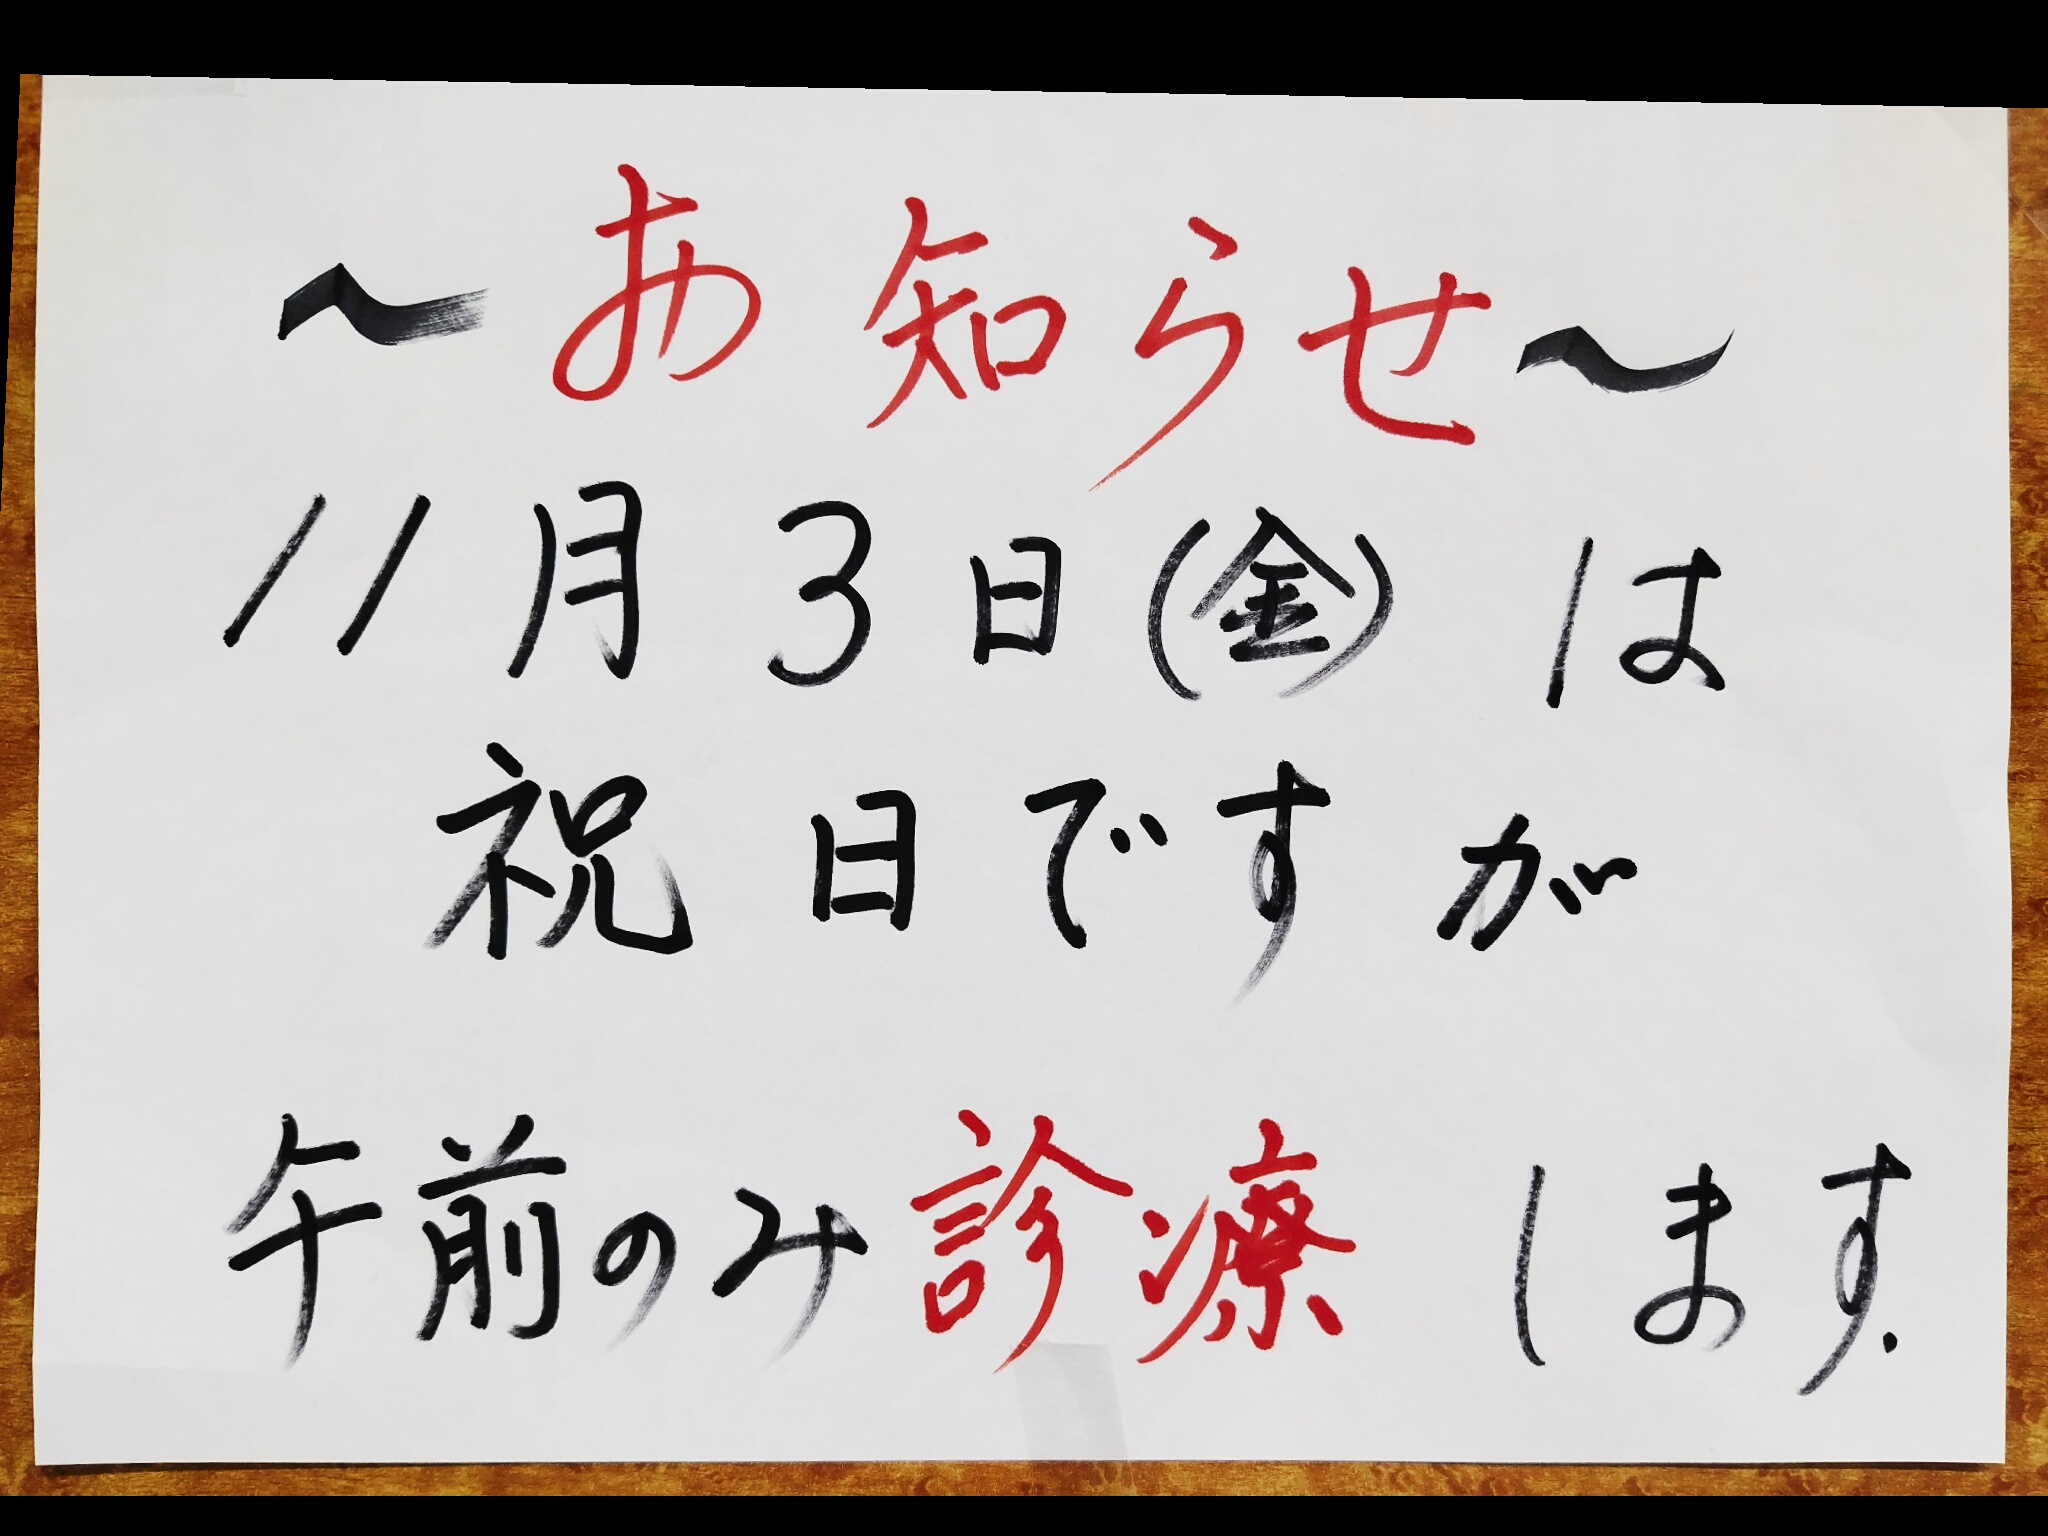 ～お知らせ～
11月3日(金)は
祝日ですが
午前のみ診療します.